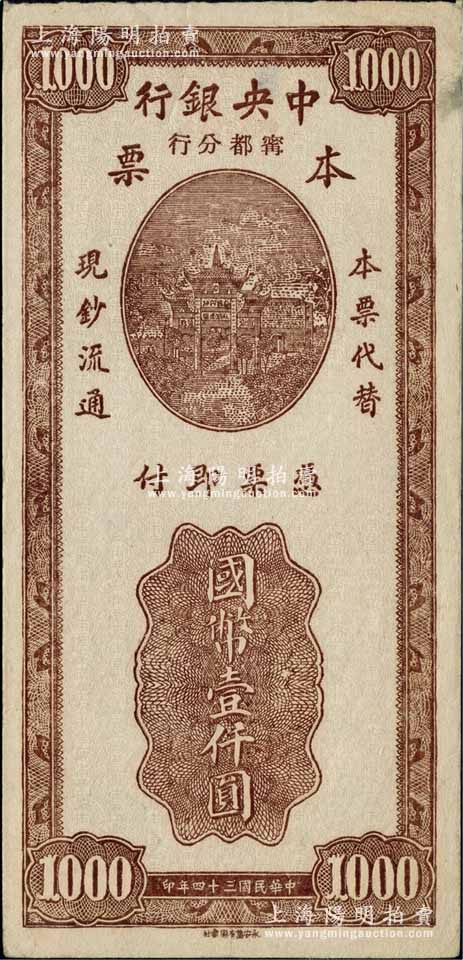 上海陽明拍賣
www.yangmingauction.com
1000 1000
中央銀行
甯都分行
本票
本票代替
現鈔流通
憑票即付
上海陽明拍賣
www.yangmingauction.com
國幣壹仟圓
1000 1000
中華民國三十四年印
上海陽明拍賣
www.yangmingauction.com